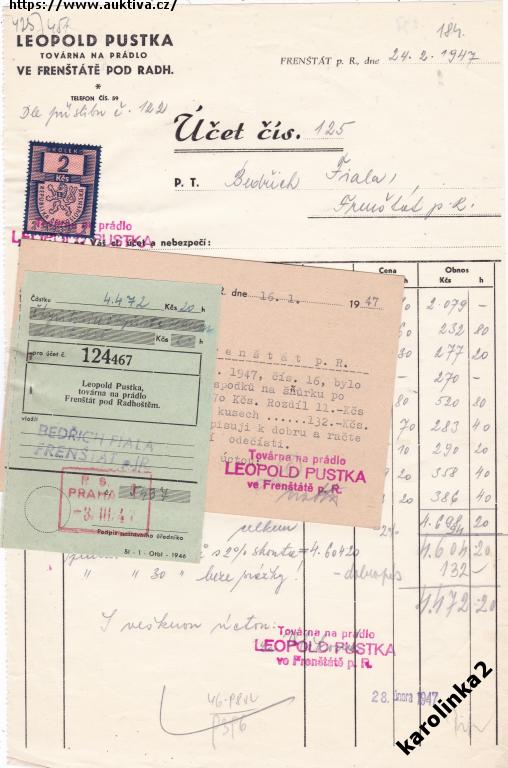 https://www.auktiva.cz/
425/457
LEOPOLD PUSTKA
TOVÁRNA NA PRÁDLO
VE FRENŠTÁTĚ POD RADH.
*
TELEFON ČÍS. 59
184.
FRENŠTÁT p. R., dne 24. 2. 1947
Dle přislibu č. 122
Účet čís. 125
KOLEK
2
Kčs
REPUBLIKA ČESKOSLOVENSKÁ
P. T. Bedřich Fiala,
Frenštát p. R.
na prádlo
LEOPOLD PUSTKA
Váš účet a nebezpečí:
Cena
Kčs h
Obnos
Kčs h
2.079 –
232 80
277 20
270 –
520 80
283 40
290 20
358 40
386 40
celkem
4.698 20
94
s 2% skonta = 4.604 20
4.604 20
" " 30 " beze srážky! – dobropis
132 –
4.472 20
S veškerou úctou:
Továrna na prádlo
LEOPOLD PUSTKA
ve Frenštátě p. R.
28. února 1947
dne 16. 1. 1947
enštát p. R.
1947, čís. 16, bylo
spodků na šňůrku po
70 Kčs. Rozdíl 11.-Kčs
kusech .....132.-Kčs
k dobru a račte
odečísti.
úctou:
Továrna na prádlo
LEOPOLD PUSTKA
ve Frenštátě p. R.
Částku 4.472 Kčs 20 h
Kčs h
pro účet č. 124467
Leopold Pustka,
továrna na prádlo
Frenštát pod Radhoštěm.
vložil
BEDŘICH FIALA
FRENŠTÁT p. R.
P. S.
PRAHA
-3. III. 47
Podpis
úředníka
St - I - Orbi - 1946
karolinka2